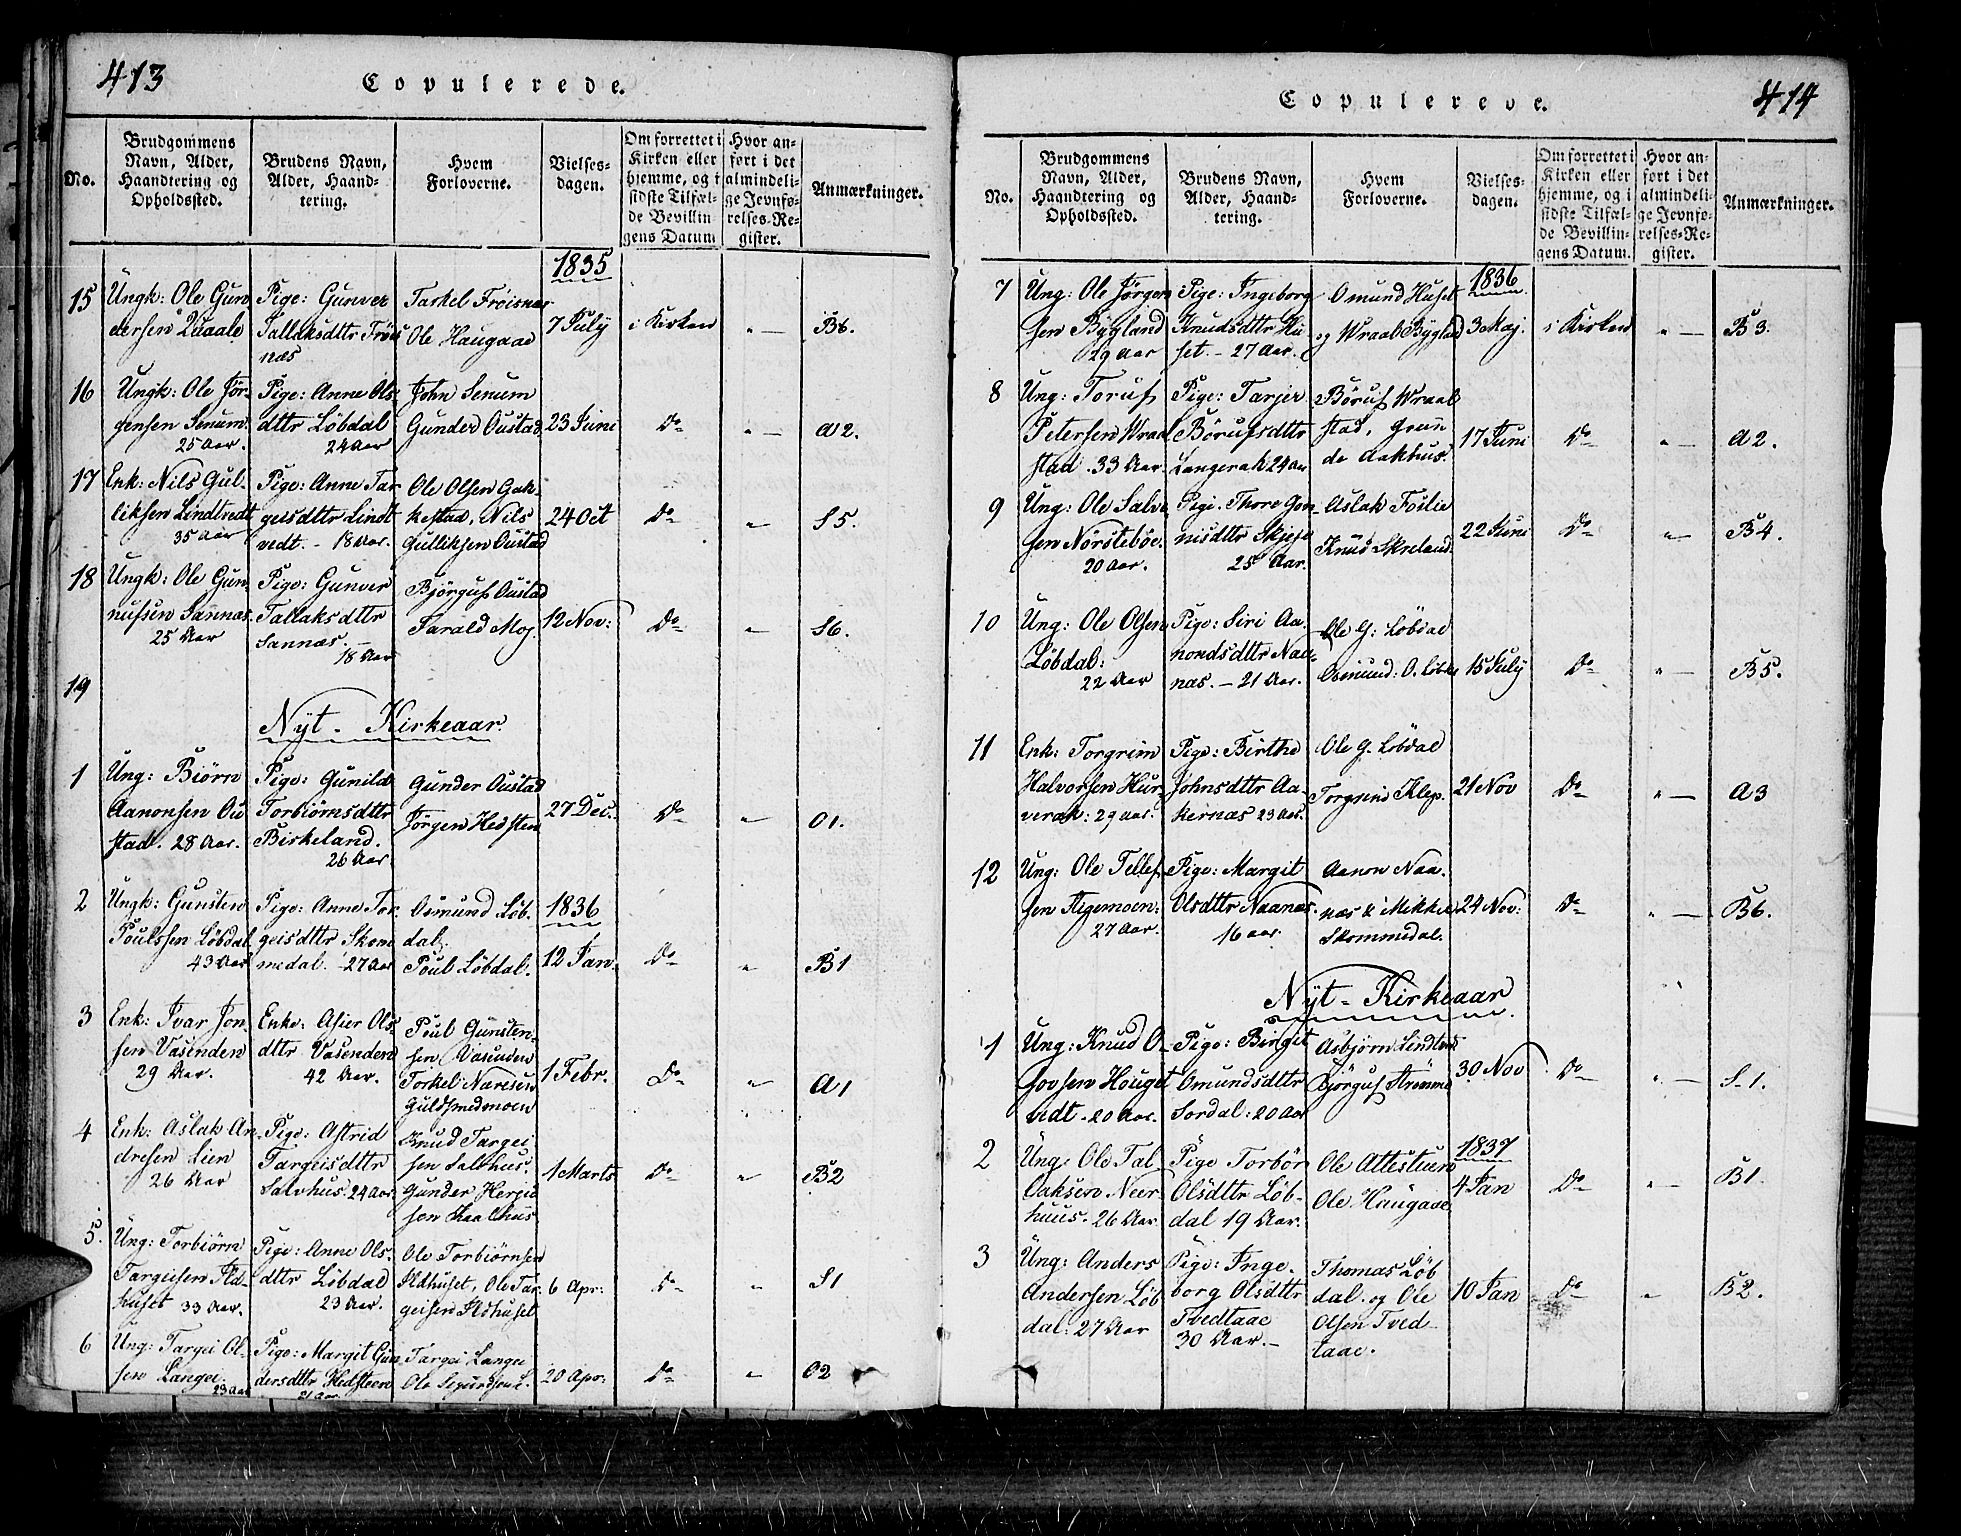 413
Copulerede.
No.
Brudgommens
Navn, Alder,
Haandtering og
Opholdssted.
Brudens Navn,
Alder, Haand-
tering.
Hvem
Forloverne.
Vielses-
dagen.
Om forrettet i
Kirken eller
hjemme, og i
sidste Tilfæl-
de Bevillin
gens Datum
Hvor an-
ført i det
almindeli-
ge Jevnfø-
relses-Re-
gister.
Anmærkninger.
1835
15
Ungk: Ole Gun
dersen
Pige: Gunver
Tallaksdttr Frøis
næs
Tarkel Frøisnæs
Ole Haugaae
7 July
i Kirken
" —
B6.
16
Ungk: Ole Jør-
gensen Senum.
25 Aar.
Pige: Anne Ols
dttr Löbdal
24 Aar
John Senum
Gunder Oustad
23 Juni
Do
" —
A2.
17
Enk: Nils Gul-
liksen Lindtvedt
35 Aar
Pige: Anne Tar
geisdttr Lindt
vedt. - 18 Aar.
Ole Olsen Gak-
kestad, Nils
Gulliksen Oustad
24 Oct
Do
"
S5.
18
Ungk: Ole Gun
nufsen Sannæs.
25 Aar
Pige: Gunver
Tallaksdttr
Sannæs. —
18 Aar
Bjørguf Oustad
Tarald Moj
12 Nov:
Do
"
S6.
19
Nÿt - Kirkeaar.
1
Ung: Biørn
Aanonsen Ou
stad. 28 Aar.
Pige: Gunild
Torbiörnsdttr
Birkeland.
26 Aar
Gunder Oustad
Jörgen Hedsten
27 Dec.
Do
"
O1.
2
Ungk: Gunsten
Poulssen Löbdal
43 Aar
Pige: Anne Tor
geisdttr Skom
medal. - 27 Aar
Osmund Löb-
dal,
Poul Löbdal.
1836
12 Jan.
Do
"
B1
3
Enk: Ivar Jon
sen Vasenden
29 Aar.
Enke: Asier Ols
dttr Vasenden
42 Aar.
Poul Gunsten-
sen Vasenden
Torkel: Naresen
Guldsmedmoen
1 Febr.
Do
"
A1
4
Enk: Aslak An-
dresen Lien
26 Aar
Pige: Astrid
Targeisdttr
Salvhus. 24 Aar.
Knud Targei
sen Salvhus.
Gunder Herjus
sen Kaalhus
1 Marts
Do
"
B2
5.
Ung: Torbiörn
Targeisen Ild-
huset 33 Aar.
Pige: Anne Ols.
dttr Löbdal
23 Aar.
Ole Torbiörnsen
Ildhuset, Ole Tar
geisen Ildhuset
6 Apr:
Do
"
S1
6
Ung: Targei Ol-
sen Langei.
23 Aar
Pige: Margit Gun
dersdttr Hedsteen
21 Aar.
Targei Langei
Ole Sigurdsen L.
20 Apr:
Do
"
O2
414
Copulerede.
No.
Brudgommens
Navn, Alder,
Haandtering og
Opholdssted.
Brudens Navn,
Alder, Haand-
tering.
Hvem
Forloverne.
Vielses-
dagen.
Om forrettet i
Kirken eller
hjemme, og i
sidste Tilfæl-
de Bevillin-
gens Datum.
Hvor an-
ført i det
almindeli-
ge Jevnfø-
relses-Re-
gister.
Anmærkninger.
1836
7
Ung: Ole Jørgen
sen Bÿgland
29 Aar
Pige: Ingeborg
Knudsdttr Hu
set. - 27 Aar.
Omund Huset
og Wraal Bÿgland
3 Maj.
i Kirken
" —
B3.
8
Ung: Toruf
Petersen Wraal
stad. 33 Aar.
Pige: Tarjer
Börufsdttr
Langerak 24 Aar
Böruf Wraal
stad, Gun
de Aakhus.
17 Juni
Do
" —
A2.
9
Ung: Ole Salve
sen Nörsteböe.
20 Aar.
Pige: Thore Gun
nisdttr Skjeje
25 Aar.
Aslak Foslie
Knud Skreland.
22 Juni
Do
" —
B4.
10
Ung: Ole Olsen
Löbdal:
22 Aar
Pige: Siri Aa
nondsdttr Naa-
næs. - 21 Aar.
Ole G: Löbdal
Osmund: O. Löbdal
15 July
Do
" —
B5.
11
Enk: Torgrim
Halvorsen Hur
verak: 29 Aar.
Pige: Birthe
Johnsdttr Aa-
kernæs 23 Aar.
Ole G. Löbdal
Torgrind Klep.
21 Nov
Do
" —
A3
12
Ung: Ole Tellef
sen Aigemoen:
27 Aar.
Pige: Margit
Olsdttr Naanæs.
16 aar.
Aanon Naa.
næs & Mikkel
Skommedal.
24 Nov:
Do
" —
B6.
Nÿt - Kirkeaar
1
Ung: Knud O-
sovsen Houget
vedt. 20 Aar.
Pige: Birgit
Omundsdttr
Sordal: 20 Aar
Asbjørn Lindtved
Bjørguf Strömme
30 Nov
Do
" —
S-1.
2
Ung: Ole Tal-
laksen Neer
huus. 26 Aar.
Pige Torbör
Olsdttr Löb-
dal 19 Aar.
Ole Attesteen
Ole Haugaae
1837
4 Jan
Do
" —
B1.
3
Ung: Anders
Andersen Löb
dal: 27 Aar
Pige: Inge.
borg Olsdttr
Tvedtaae
30 Aar. -
Thomas Löb
dal. og Ole
Olsen Tved-
taae.
10 Jan
Do
"
B2.